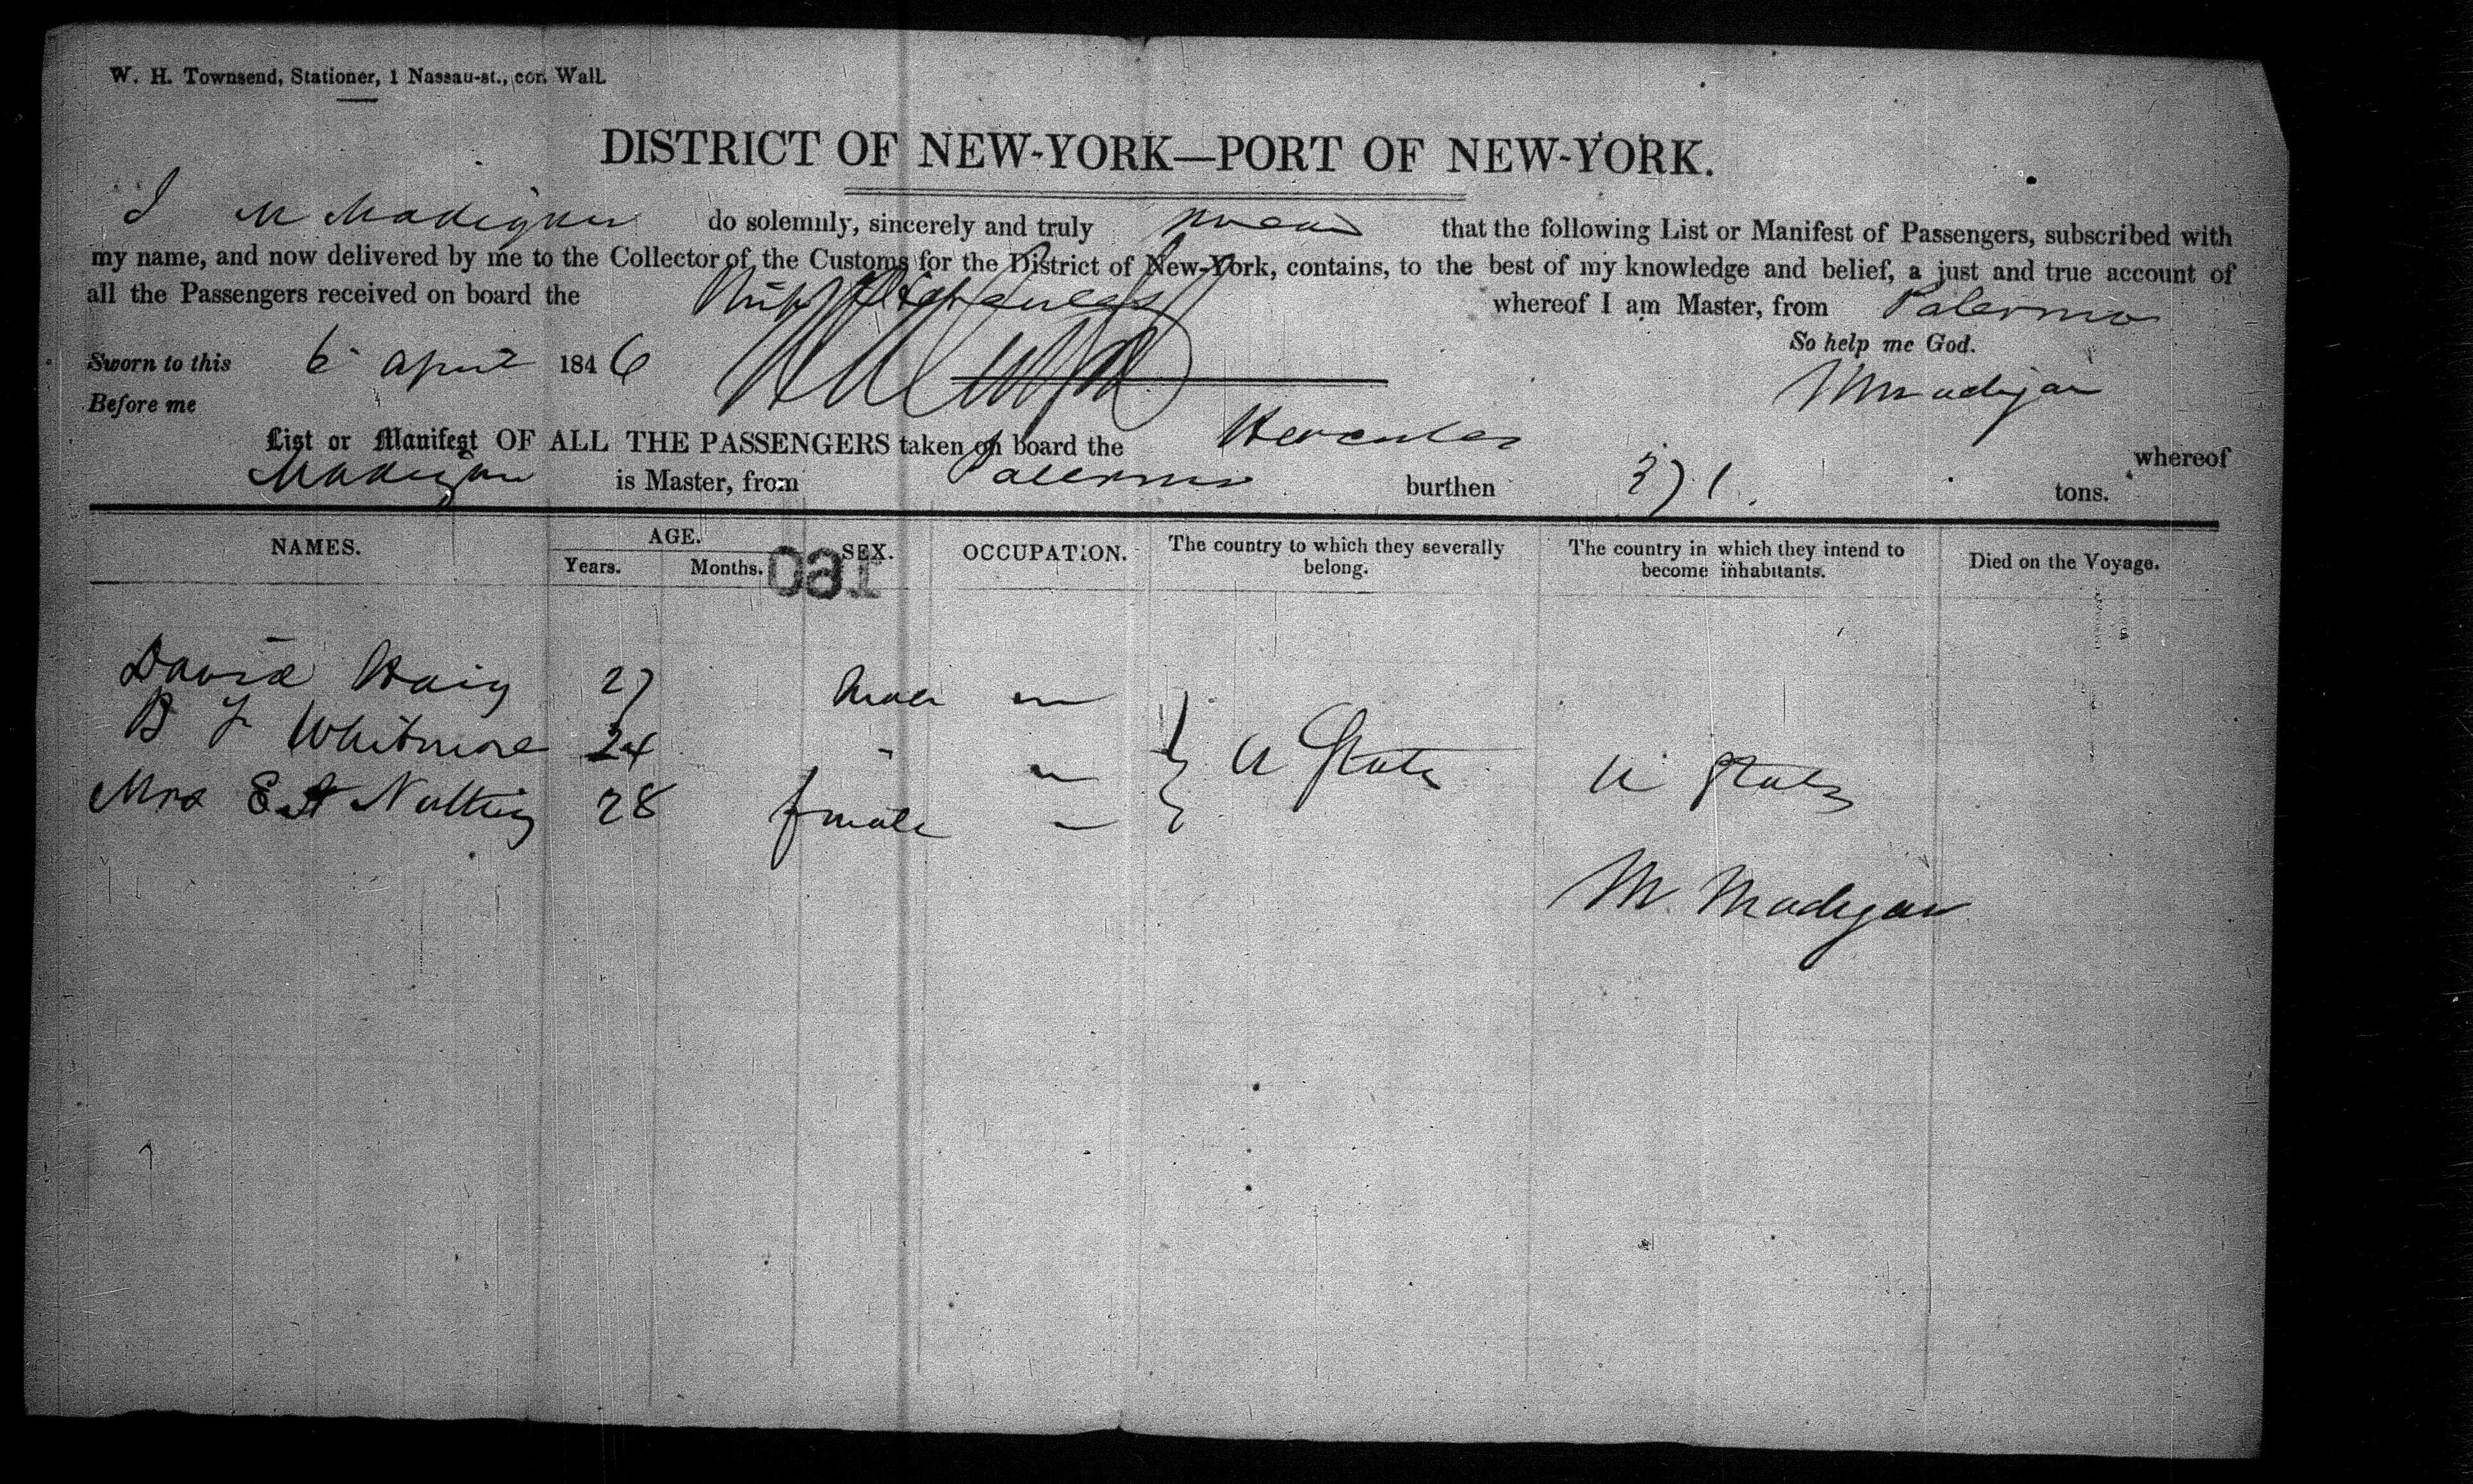 W. H. Townsend, Stationer, 1 Nassau-st., cor. Wall.
DISTRICT OF NEW-YORK—PORT OF NEW-YORK.
I M Madigan do solemnly, sincerely and truly swear that the following List or Manifest of Passengers, subscribed with
my name, and now delivered by me to the Collector of the Customs for the District of New-York, contains, to the best of my knowledge and belief, a just and true account of
all the Passengers received on board the Hercules whereof I am Master, from Palermo
So help me God.
Sworn to this 6 April 1846 M Madigan
Before me
List or Manifest OF ALL THE PASSENGERS taken on board the Hercules whereof
Madigan is Master, from Palermo burthen 371. tons.
NAMES. AGE. Years. Months. SEX. OCCUPATION. The country to which they severally belong. The country in which they intend to become inhabitants. Died on the Voyage.
cal
David Haig 27 Male
B F Whitmore 24 " U States U States
Mrs E A Nutting 28 female
M. Madigan